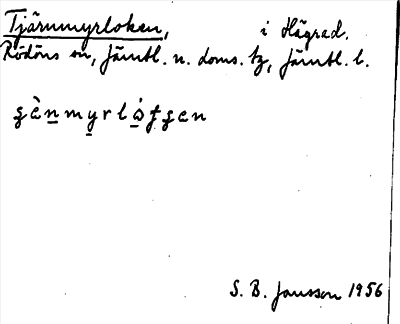 Tjärnmyrloken, i Hägrad.
Rödöns sn, Jämtl. n. doms. tg, Jämtl. l.
S. B. Jansson 1956